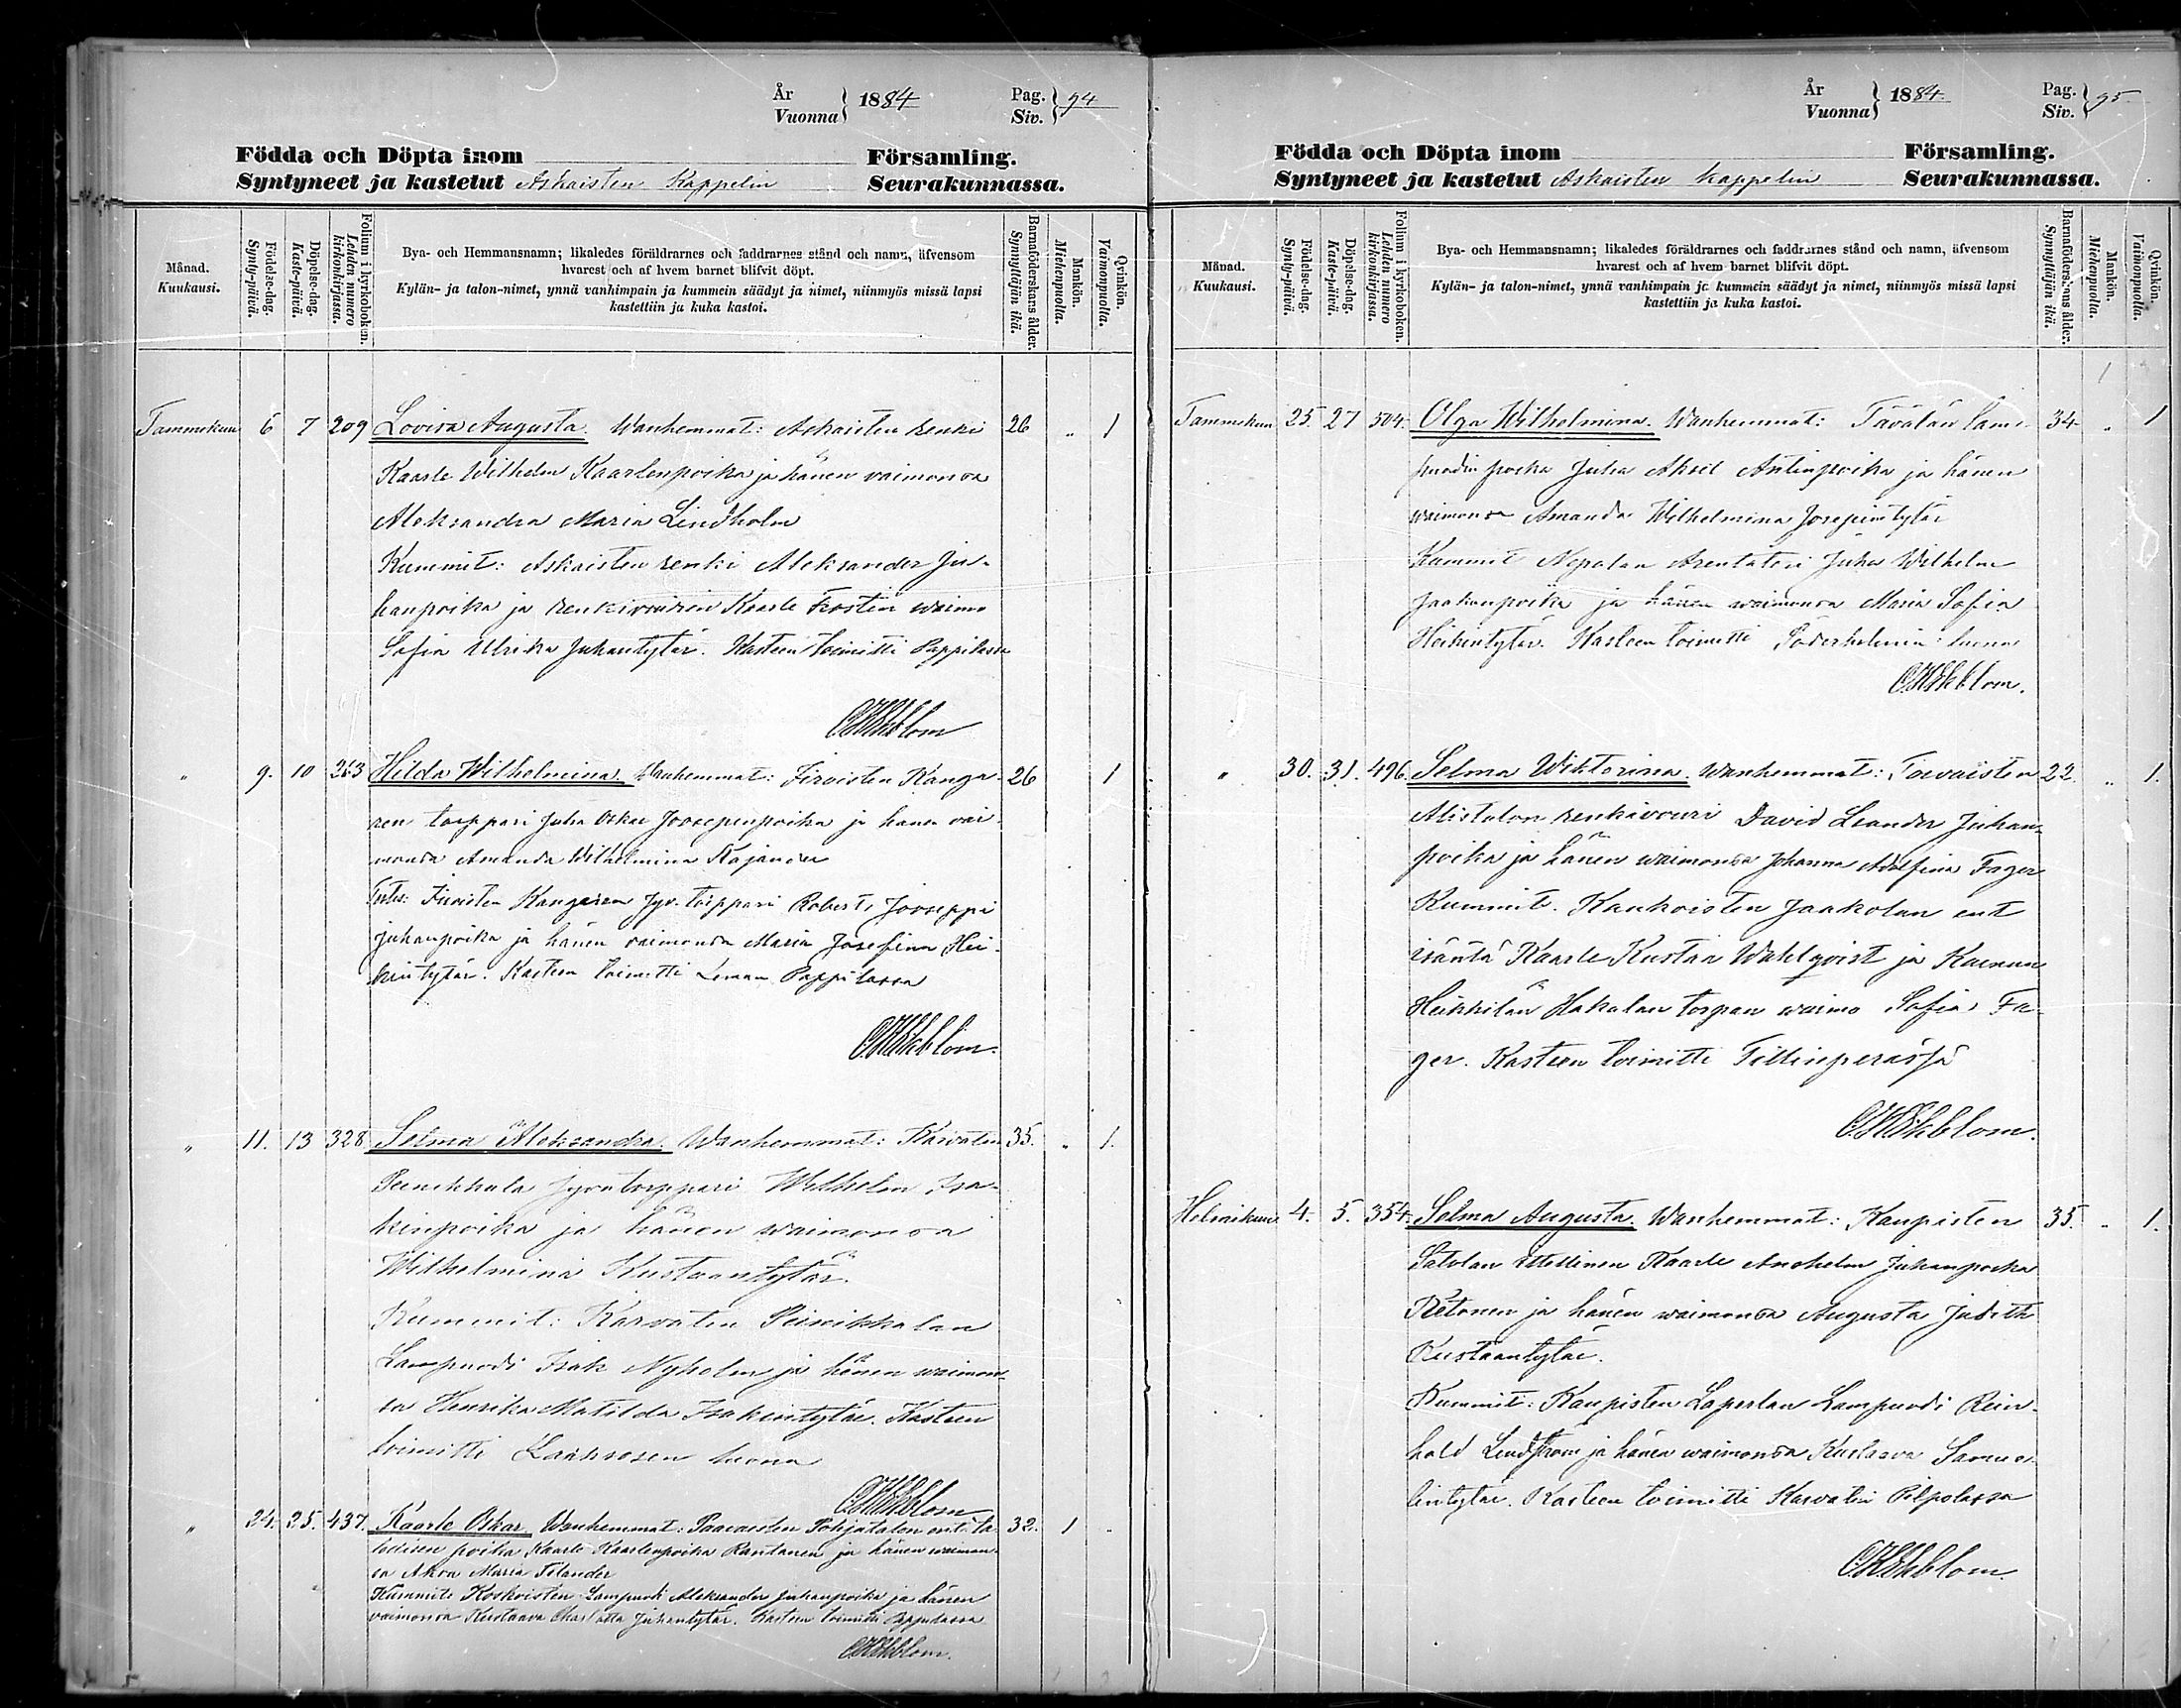 År
Vuonna } 1884 Pag.
Siv. } 94
Födda och Döpta inom Församling.
Syntyneet ja kastetut Askaisten Kappelin Seurakunnassa.
Månad.
Kuukausi.
Födelse-dag.
Synty-päivä.
Döpelse-dag.
Kaste-päivä.
Folium i kyrkoboken.
Lehden numero
kirkonkirjassa.
Bya- och Hemmansnamn; likaledes föräldrarnes och faddrarnes stånd och namn, äfvensom
hvarest och af hvem barnet blifvit döpt.
Kylän- ja talon-nimet, ynnä vanhimpain ja kummein säädyt ja nimet, niinmyös missä lapsi
kastettiin ja kuka kastoi.
Barnaföderskans ålder.
Synnyttäjän ikä.
Mankön.
Miehenpuolia.
Qvinkön.
Vaimonpuolia.
Tammikuu 6 7 209 Lovisa Augusta. Wanhemmat: Askaisten renki 26 " 1
Kaarle Wilhelm Kaarlenpoika ja hänen vaimonsa
Aleksandra Maria Lindholm
Kummit: Askaisten renki Aleksander Ju-
hanpoika ja renkivouvin Kaarle Frostin waimo
Sofia Ulrika Juhantytär. Kasteen toimitti Pappilassa
Ekblom
" 9. 10 263 Hilda Wilhelmina. Wanhemmat: Kanga- 26 1
ren torppari Juha Oskar Joosepinpoika ja hänen vai-
monsa Amanda Wilhelmina Kajander
Kangaren torppari Robert Jooseppi
Juhanpoika ja hänen vaimonsa Maria Josefina Hei-
kintytär. Kasteen toimitti Pappilassa
Ekblom.
" 11. 13 328 Selma Aleksandra. Wanhemmat: Karvaten 35. " 1.
Wilhelm Isa-
kinpoika ja hänen waimonsa
Wilhelmina Kustaantytär.
Kummit: Karvaten
Lampuodi Isak Nyholm ja hänen waimon-
sa Henrika Matilda Isakintytär. Kasteen
toimitti luona
Ekblom
" 24. 25. 437. Kaarle Oskar Wanhemmat: Pohjatalon 32. 1 "
poika Kaarle Kaarlenpoika Rantanen ja hänen waimon-
sa Maria
Kummit: Koskoisten Lampuoti Aleksander Juhanpoika ja hänen
vaimonsa Kustaava Charlotta Juhantytär. Kasteen toimitti Pappilassa
Ekblom.
År
Vuonna } 1884. Pag.
Siv. } 95
Födda och Döpta inom Församling.
Syntyneet ja kastetut Askaisten Kappelin Seurakunnassa.
Månad.
Kuukausi.
Födelse-dag.
Synty-päivä.
Döpelse-dag.
Kaste-päivä.
Folium i kyrkoboken.
Lehden numero
kirkonkirjassa.
Bya- och Hemmansnamn; likaledes föräldrarnes och faddrarnes stånd och namn, äfvensom
hvarest och af hvem barnet blifvit döpt.
Kylän- ja talon-nimet, ynnä vanhimpain ja kummein säädyt ja nimet, niinmyös missä lapsi
kastettiin ja kuka kastoi.
Barnaföderskans ålder.
Synnyttäjän ikä.
Mankön.
Miehenpuolia.
Qvinkön.
Vaimonpuolia.
Tammikuu 25. 27 504. Olga Wilhelmina. Wanhemmat: lam- 34. " 1
puodin poika Juha Aksel Antinpoika ja hänen
waimonsa Amanda Wilhelmina Josepintytär
Kummit Arentatori Juha Wilhelm
Jaakonpoika ja hänen waimonsa Maria Sofia
Heikintytär. Kasteen toimitti Söderholmin luona
Ekblom.
" 30. 31. 496. Selma Wiktorina. Wanhemmat: 22. " 1.
renkivouvi David Leander Juhan-
poika ja hänen waimonsa Johanna Adolfina Fager
Kummit. Kankoisten Jaakolan ent
isäntä Kaarle Kustaa Wahlqvist ja
Heikkilän Hakalan torpan waimo Sofia Fa-
ger. Kasteen toimitti
Ekblom.
Helmikuu 4. 5. 354. Selma Augusta. Wanhemmat: Kaupisten 35. " 1.
Kaarle Anshelm Juhanpoika
Ketonen ja hänen waimonsa Augusta Judith
Kustaantytär.
Kummit: Kaupisten Lampuodi Rein-
hold Lindstrom ja hänen waimonsa Kustaava Samue-
lintytär. Kasteen toimitti Karvatin Pilpolassa
Ekblom.